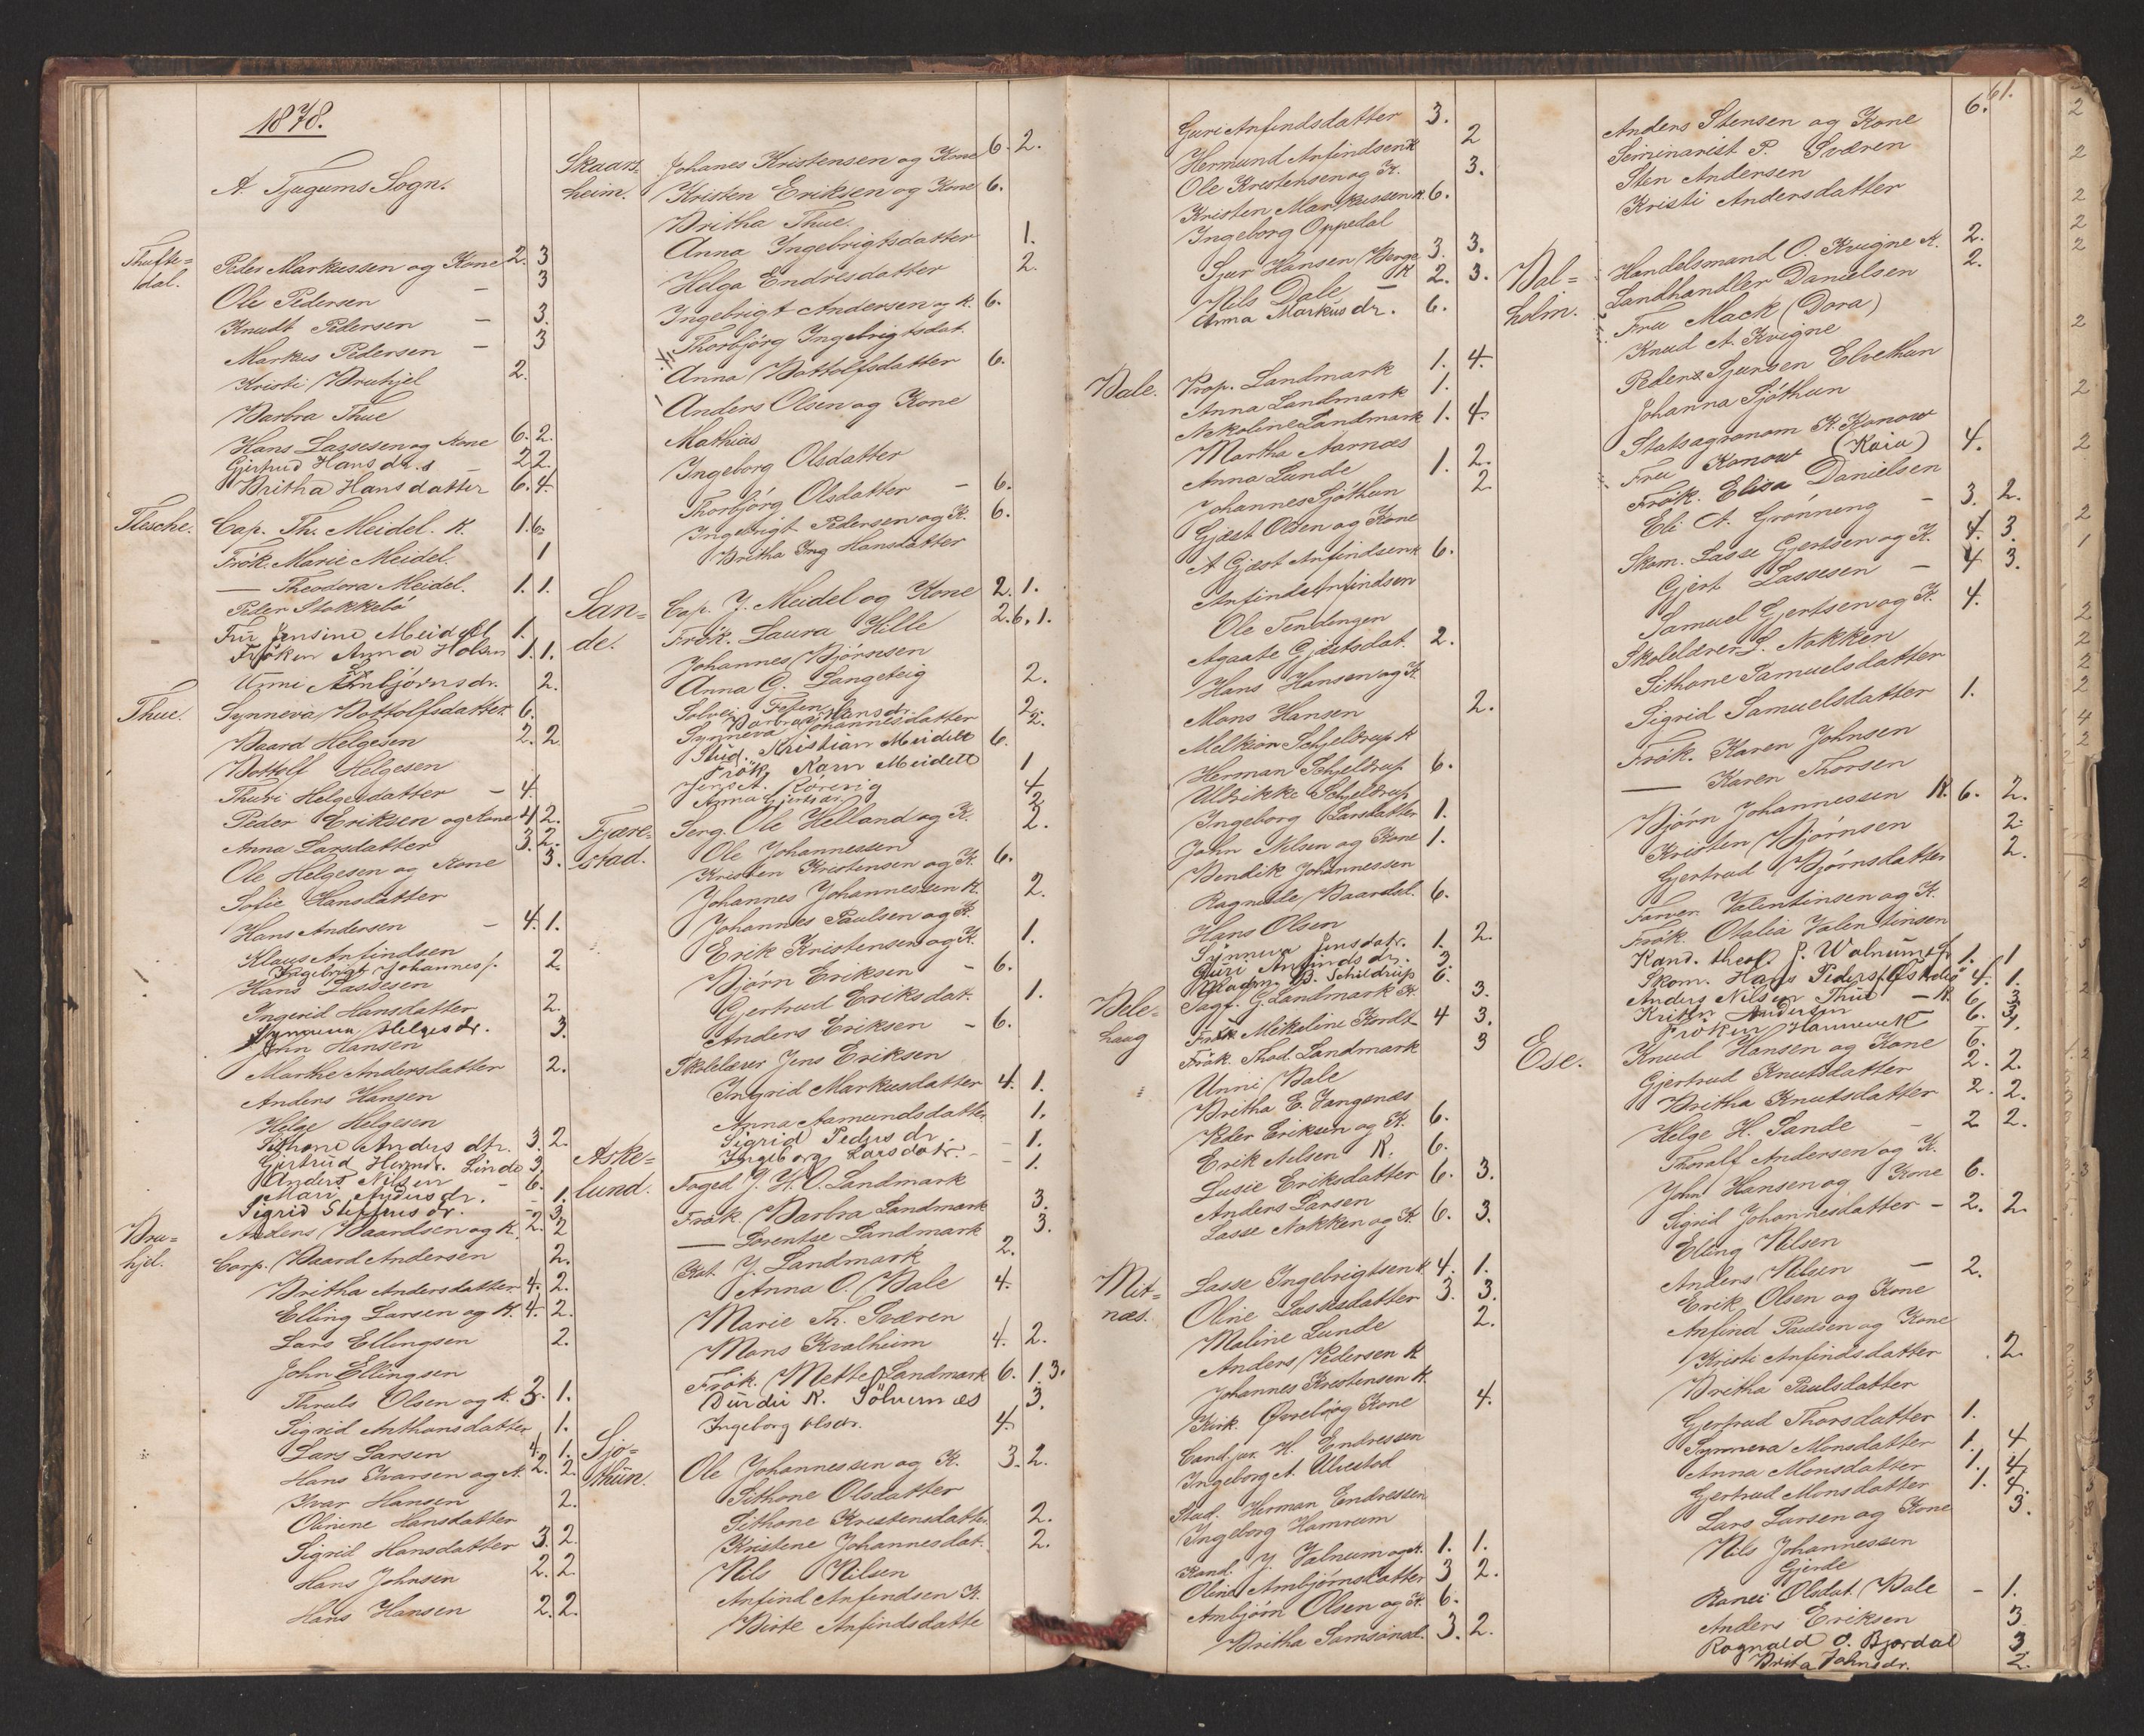 1878.
A. Tjugums Sogn.
Thufte=
dal.
Peder Markussen og Kone 2. 3
Ole Pedersen — 3
Knudt Pedersen — 3.
Markus Pedersen — 3
Kristi Bruhjel 2.
Barbra Thue
Hans Lassesen og Kone 6. 2.
Gjertrud Hans dr. 2 2.
Britha Hansdatter 6. 4.
Flesche.
Cap. Th. Meidel. K. 1. 6.
Frøk. Marie Meidel. 1
— Theodora Meidel. 1. 1.
Peder Stokkebø
Fru Jensine Meidell 1.
Frøken Anna Holsen 1. 1.
Unni Arnbjørnsdr. 2.
Thue.
Synneva Bottolfsdatter 6.
Baard Helgesen 2. 2
Bottolf Helgesen
Thuri Helgesdatter — 4.
Peder Eriksen og Kone 4 2.
Anna Larsdatter 3. 2.
Ole Helgesen og Kone 3.
Sofie Hansdatter
Hans Andersen — 4. 1.
Klaus Anfindsen
Ingebrigt Johannes/. 2.
Hans Lassesen
Ingerid Hansdatter 2.
Synneva Helgesdr. 3.
John Hansen
Marthe Andersdatter 2.
Anders Hansen
Helge Helgesen
Sithone Anders dtr. 3. 2.
Gjertrud Hermdr. Linde 3.
Anders Nilsen — 6.
Mari Andersdr. — 1.
Sigrid Steffens dr. — 3
Bru=
hjel.
Anders Baardsen og K. 2. 2
Corp. Baard Andersen 2.
Britha Andersdatter 4. 2.
Elling Larsen og K. 4. 2.
Lars Ellingsen 2.
John Ellingsen
Thruls Olsen og K. 3. 1.
Sigrid Anthonsdatter 1.
Lars Larsen 4. 1.
Hans Ivarsen og K. 2. 2.
Ivar Hansen 2.
Olinine Hansdatter
Sigrid Hansdatter 3. 2.
Hans Johnsen 2. 2.
Hans Hansen 2. 2.
Skaars=
heim.
Johanes Kristensen og Kone 6. 2.
Kristen Eriksen og Kone 6.
Britha Thue.
Anna Ingebrigtsdatter 1.
Helga Endresdatter 2.
Ingebrigt Andersen og K. 6.
Thorbjørg Ingebrigtsdat.
Anna Bottolfsdatter 6.
Anders Olsen og Kone
Mathias
Ingeborg Olsdatter
Thorbjørg Olsdatter — 6.
Ingebrigt Pedersen og K. 6.
Britha Ing Hansdatter
San=
de.
Cap. J. Meidel og Kone 2. 1.
Frøk. Laura Hille 2. 6. 1.
Johannes Bjørnsen
Anna C. Langeteig 2.
Solvei Feten
Barbra Hansdr. 2.
Synneva Johannesdatter 2.
Stud. Kristian Meidell 6.
Frøk. Karn Meidell 1
Jens A. Rørvig 4
Anna Gjertsdr. 2
Fjære=
stad.
Serg. Ole Helland og K. 2.
Ole Johannessen
Kristen Kristensen og K. 6.
Johannes Johannessen K. 2.
Johannes Paulsen og K.
Erik Kristensen og K. 1.
Bjørn Eriksen — 6.
Gjertrud Eriksdat. 1.
Anders Eriksen — 6.
Skolelærer Jens Eriksen
Ingrid Markusdatter 4. 1.
Anna Aamundsdatter 1.
Sigrid Peders dr. — 1.
Ingeborg Larsdatr. — 1.
Aske=
lund.
Foged J. H. O. Landmark
Frøk. Barbra Landmark 3.
— Lorentse Landmark 3.
Kat. J. Landmark 2.
Anna O. Bale 4.
Marie Th. Sværen
Mons Kvalheim 4. 2.
Frøk. Mette Landmark 6. 1. 3.
Durdei N. Sölvernæs 3.
Ingeborg Olsdr. 4.
Sjø=
thun.
Ole Johannessen og K. 3. 2.
Sithone Olsdatter
Sithone Kristensdatter 2.
Kristene Johannesdat. 2.
Nils Nilsen
Anfind Anfindsen K.
Birte Anfindsdatte
Guri Anfindsdatter 3.
Hermund Anfindsen K 2
Ole Kristensen og K. 3.
Kristen Markussen K. 6.
Ingeborg Oppedal
Sjur Hansen Berge 3. 3.
Nils Dale — K 2. 3.
Anna Markusdr. 6.
Bale.
Prop. Landmark 1. 4.
Anna Landmark 1.
Nikoline Landmark 1. 4.
Martha Aarnæs
Anna Lunde 1. 2.
Johannes Sjøthun 2.
Gjæst Olsen og Kone
A Gjæst Anfindsen K 6.
Anfind Anfindsen
Ole Tendingen
Agaate Gjæstsdat. 2.
Hans Hansen og K.
Mons Hansen 2.
Melkior Schjeldrup K
Herman Schjeldrup 6.
Uldrikke Schjeldrup
Ingeborg Larsdatter 1.
John Nilsen og Kone 1.
Bendik Johannessen
Ragnilde Baardsd. 6.
Hans Olsen
Synneva Jensdatr. 1. 2.
Guri Anfinds dr. 3.
Madm. B. Schildrup 6.
Bele=
haug
Sagf. G. Landmark K. 3.
Frøk Mikeline Kordt 4 3.
Frøk. Thod. Landmark 3
Unni Bale
Britha E. Vangenæs
Peder Eriksen og K. 6.
Erik Nilsen K. 6.
Lusie Eriksdatter 6. 3.
Anders Larsen
Lasse Nokken og K. 6. 3.
Mit=
næs.
Lasse Ingebrigtsen K 4. 1.
Oline Lassesdatter 3. 3.
Maline Lunde 2.
Anders Pedersen K
Johannes Kristensen K.
Kirk. Øvrebø og Kone 4.
Cand. jur. H. Endressen
Ingeborg A. Ulvestad
Stud. Herman Endressen
Ingeborg Hamrum
Kand. J. Valnum og K. 1. 1.
Oline Arnbjørnsdatter 3 2.
Arnbjørn Olsen og K. 6.
Britha Samsonsd. 3. 2.
61.
Anders Stensen og Kone 6.
Seminarist P. Sværen
Sten Andersen
Kristi Andersdatter
Bal=
holm.
Handelsmand O. Kvigne K. 2.
Landhandler Danielsen 2.
Fru Mack (Dora)
Knud A. Kvigne
Peder Sjursen Elvethun
Johanna Sjøthun
Statsagronom K. Konow
Fru Konow (Kaia) 4.
Frøk. Elisa Danielsen
Eli A. Grønning — 3. 2.
Skom. Lasse Gjertsen og K. 4. 3.
Gjert Lassesen — 4 3.
Samuel Gjertsen og K. 4.
Skolelærer L. Nokken
Sithone Samuelsdatter
Sigrid Samuelsdatter 1.
Frøk. Karen Johnsen
— Karen Thorsen
Bjørn Johannessen K. 6. 2.
Kristen Bjørnsen 2.
Gjertrud Bjørnsdatter 2.
Farver Valentinsen og K.
Frøk. Otalia Valentinsen
Kand. theol. J. Walnum &fr 1. 1
Skom. Hans Peders 4. 1.
Anders Nilsen Thue — K. 6 3
Kristn Andersen 6. 3.
Frøken Hannevik 6. 1.
Ese.
Knud Hansen og Kone
Gjertrud Knutsdatter 2. 2.
Britha Knutsdatter 2. 2.
Helge H. Sande — 2 2.
Thoralf Andersen og K.
John Hansen og Kone 6.
Sigrid Johannesdatter — 2. 2.
Elling Nilsen
Anders Nilsen — 2.
Erik Olsen og Kone
Anfind Paulsen og Kone
Kristi Anfindsdatter 2.
Britha Paulsdatter
Gjertrud Thorsdatter 1.
Synneva Monsdatter 1. 4
Anna Monsdatter 1. 4
Gjertrud Monsdatter 1. 4.
Lars Larsen og Kone 3.
Nils Johannessen
Gjerde
Ranei Olsdat. Bale — 1.
Anders Eriksen 3
Ragnald O. Bjordal 3
Brita Johnsdr. 2.